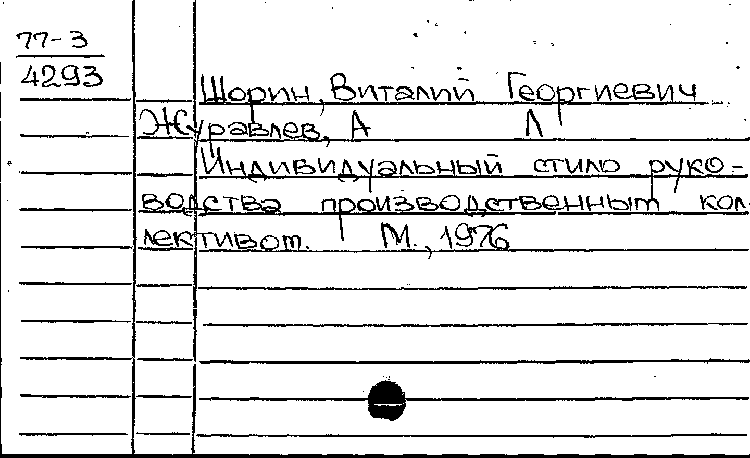 77-3
4293
Шорин, Виталий Георгиевич
Журавлев, А Л
Индивидуальный стиль руко-
водства производственным кол-
лективом. М., 1976